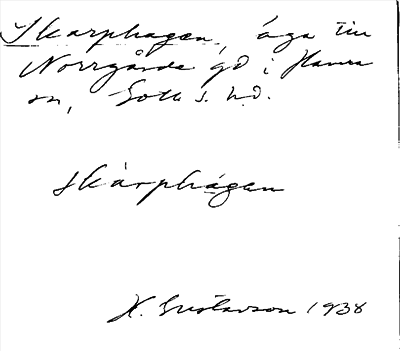 Skarphagen, äga till
Norrgårde gd i Hamra
sn, Gotl. s. hd.
skàrphágen
H. Gustavson 1938